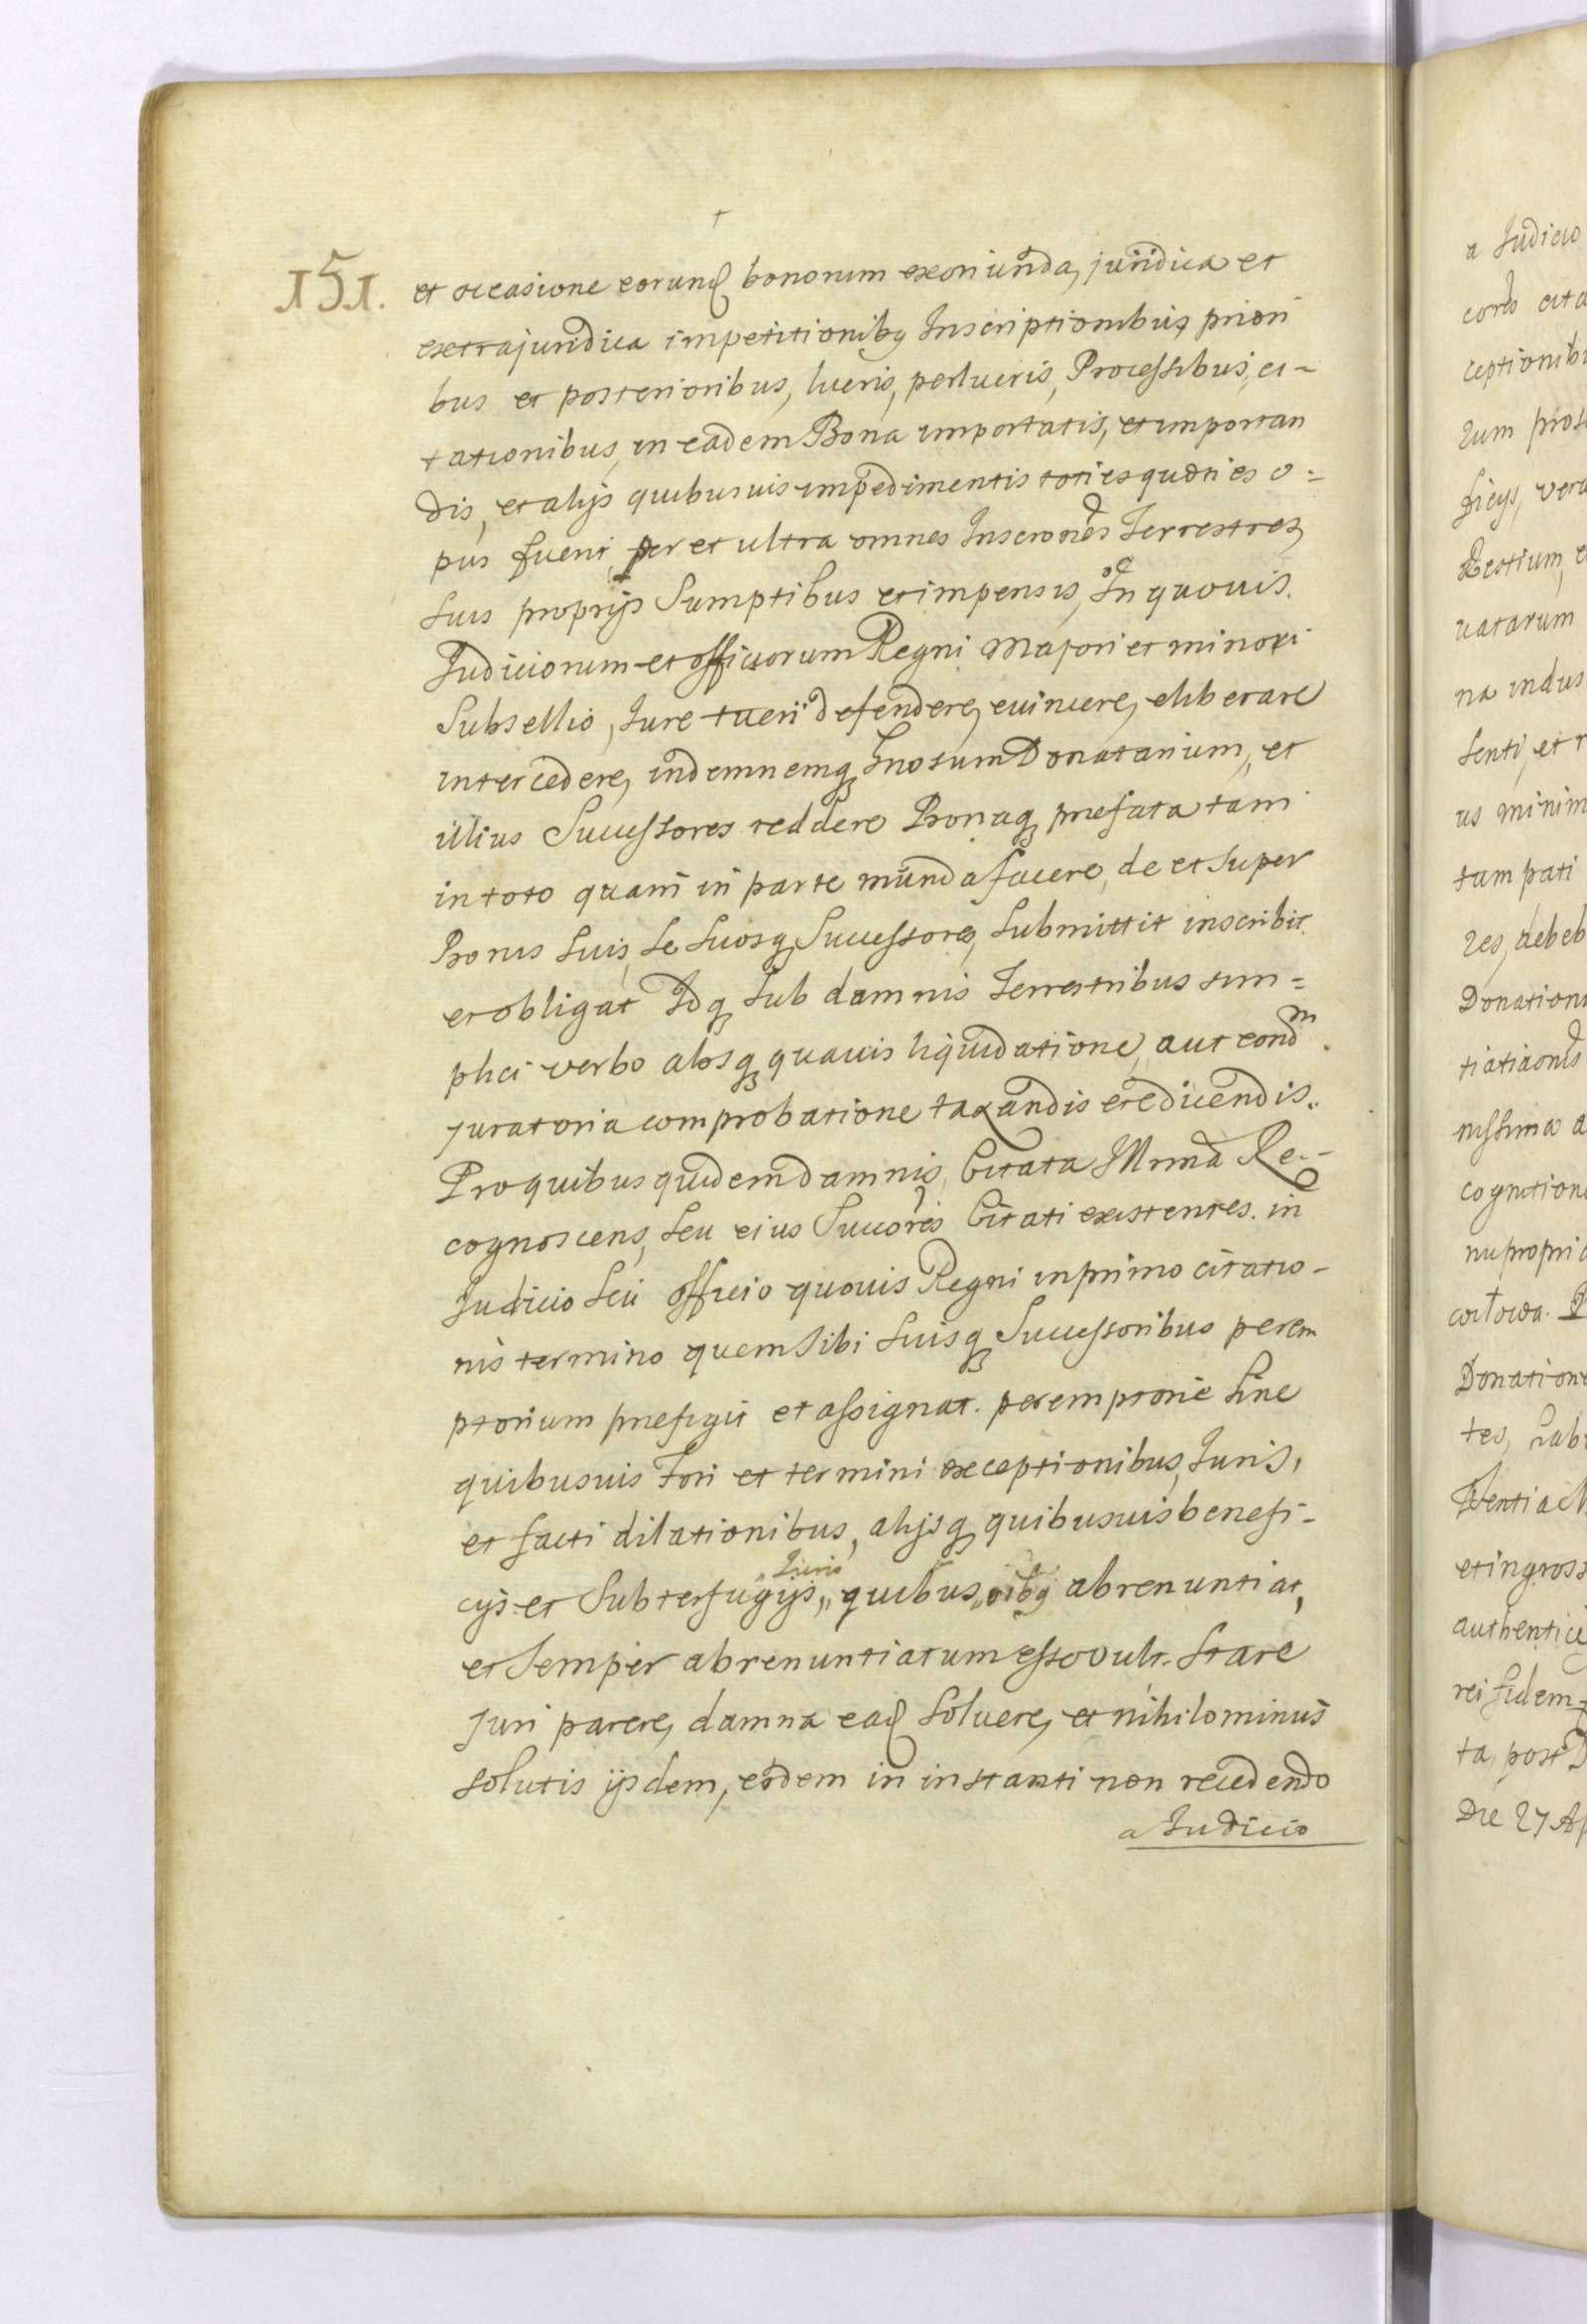 151.
et occasione eorund bonorum exoriunda, juridica et
extrajuridica impetitionibq Inscriptionibus priori
bus et posterioribus, lucris, perlucris, Processibus, ci-
tationibus, in eadem Bona importatis, et importan
dis, et alijs quibusuis impedimentis toties quoties o=
pus fuerit, per et ultra omnes Inscrones Terrestres,
suis proprijs Sumptibus et impensis, In quouis
Judiciorum et officiorum Regni Majori et minori
Subsellio, Jure tueri defendere, euincere, eliberare
intercedere, indemnemq Gnosum Donatarium, et
illius Successores reddere Bonaq prefata tam
in toto quam in parte munda facere, de et super
Bonis suis, se suosq Successores, submittit inscribit
et obligat Idq sub damnis Terrestribus sim=
plici verbo absq quauis liquidatione, aut eond
juratoria comprobatione taxandis et edicendis.
Pro quibus quidem damnis, Citata Illrma Re-
cognoscens, seu eius Succores Citati existentes. in
Judicio seu officio quouis Regni in primo citatio-
nis termino quem sibi suisq Successoribus perem
ptorium prefigit et assignat. peremptorie sine
quibusuis Fori et termini exceptionibus, Juris,
et facti dilationibus, alijsq quibusuis benefi-
cijs et Subterfugijs, „Juris„ quibus „oibq abrenuntiat,
et semper abrenuntiatum esse vult. Stare
Juri parere, damna ead soluere, et nihilominus
solutis ijsdem, eodem in instanti non recedendo
a Judicio
a Judicio
Donation
Donatione
rei fidem
ta, post D
Die 27 Ap